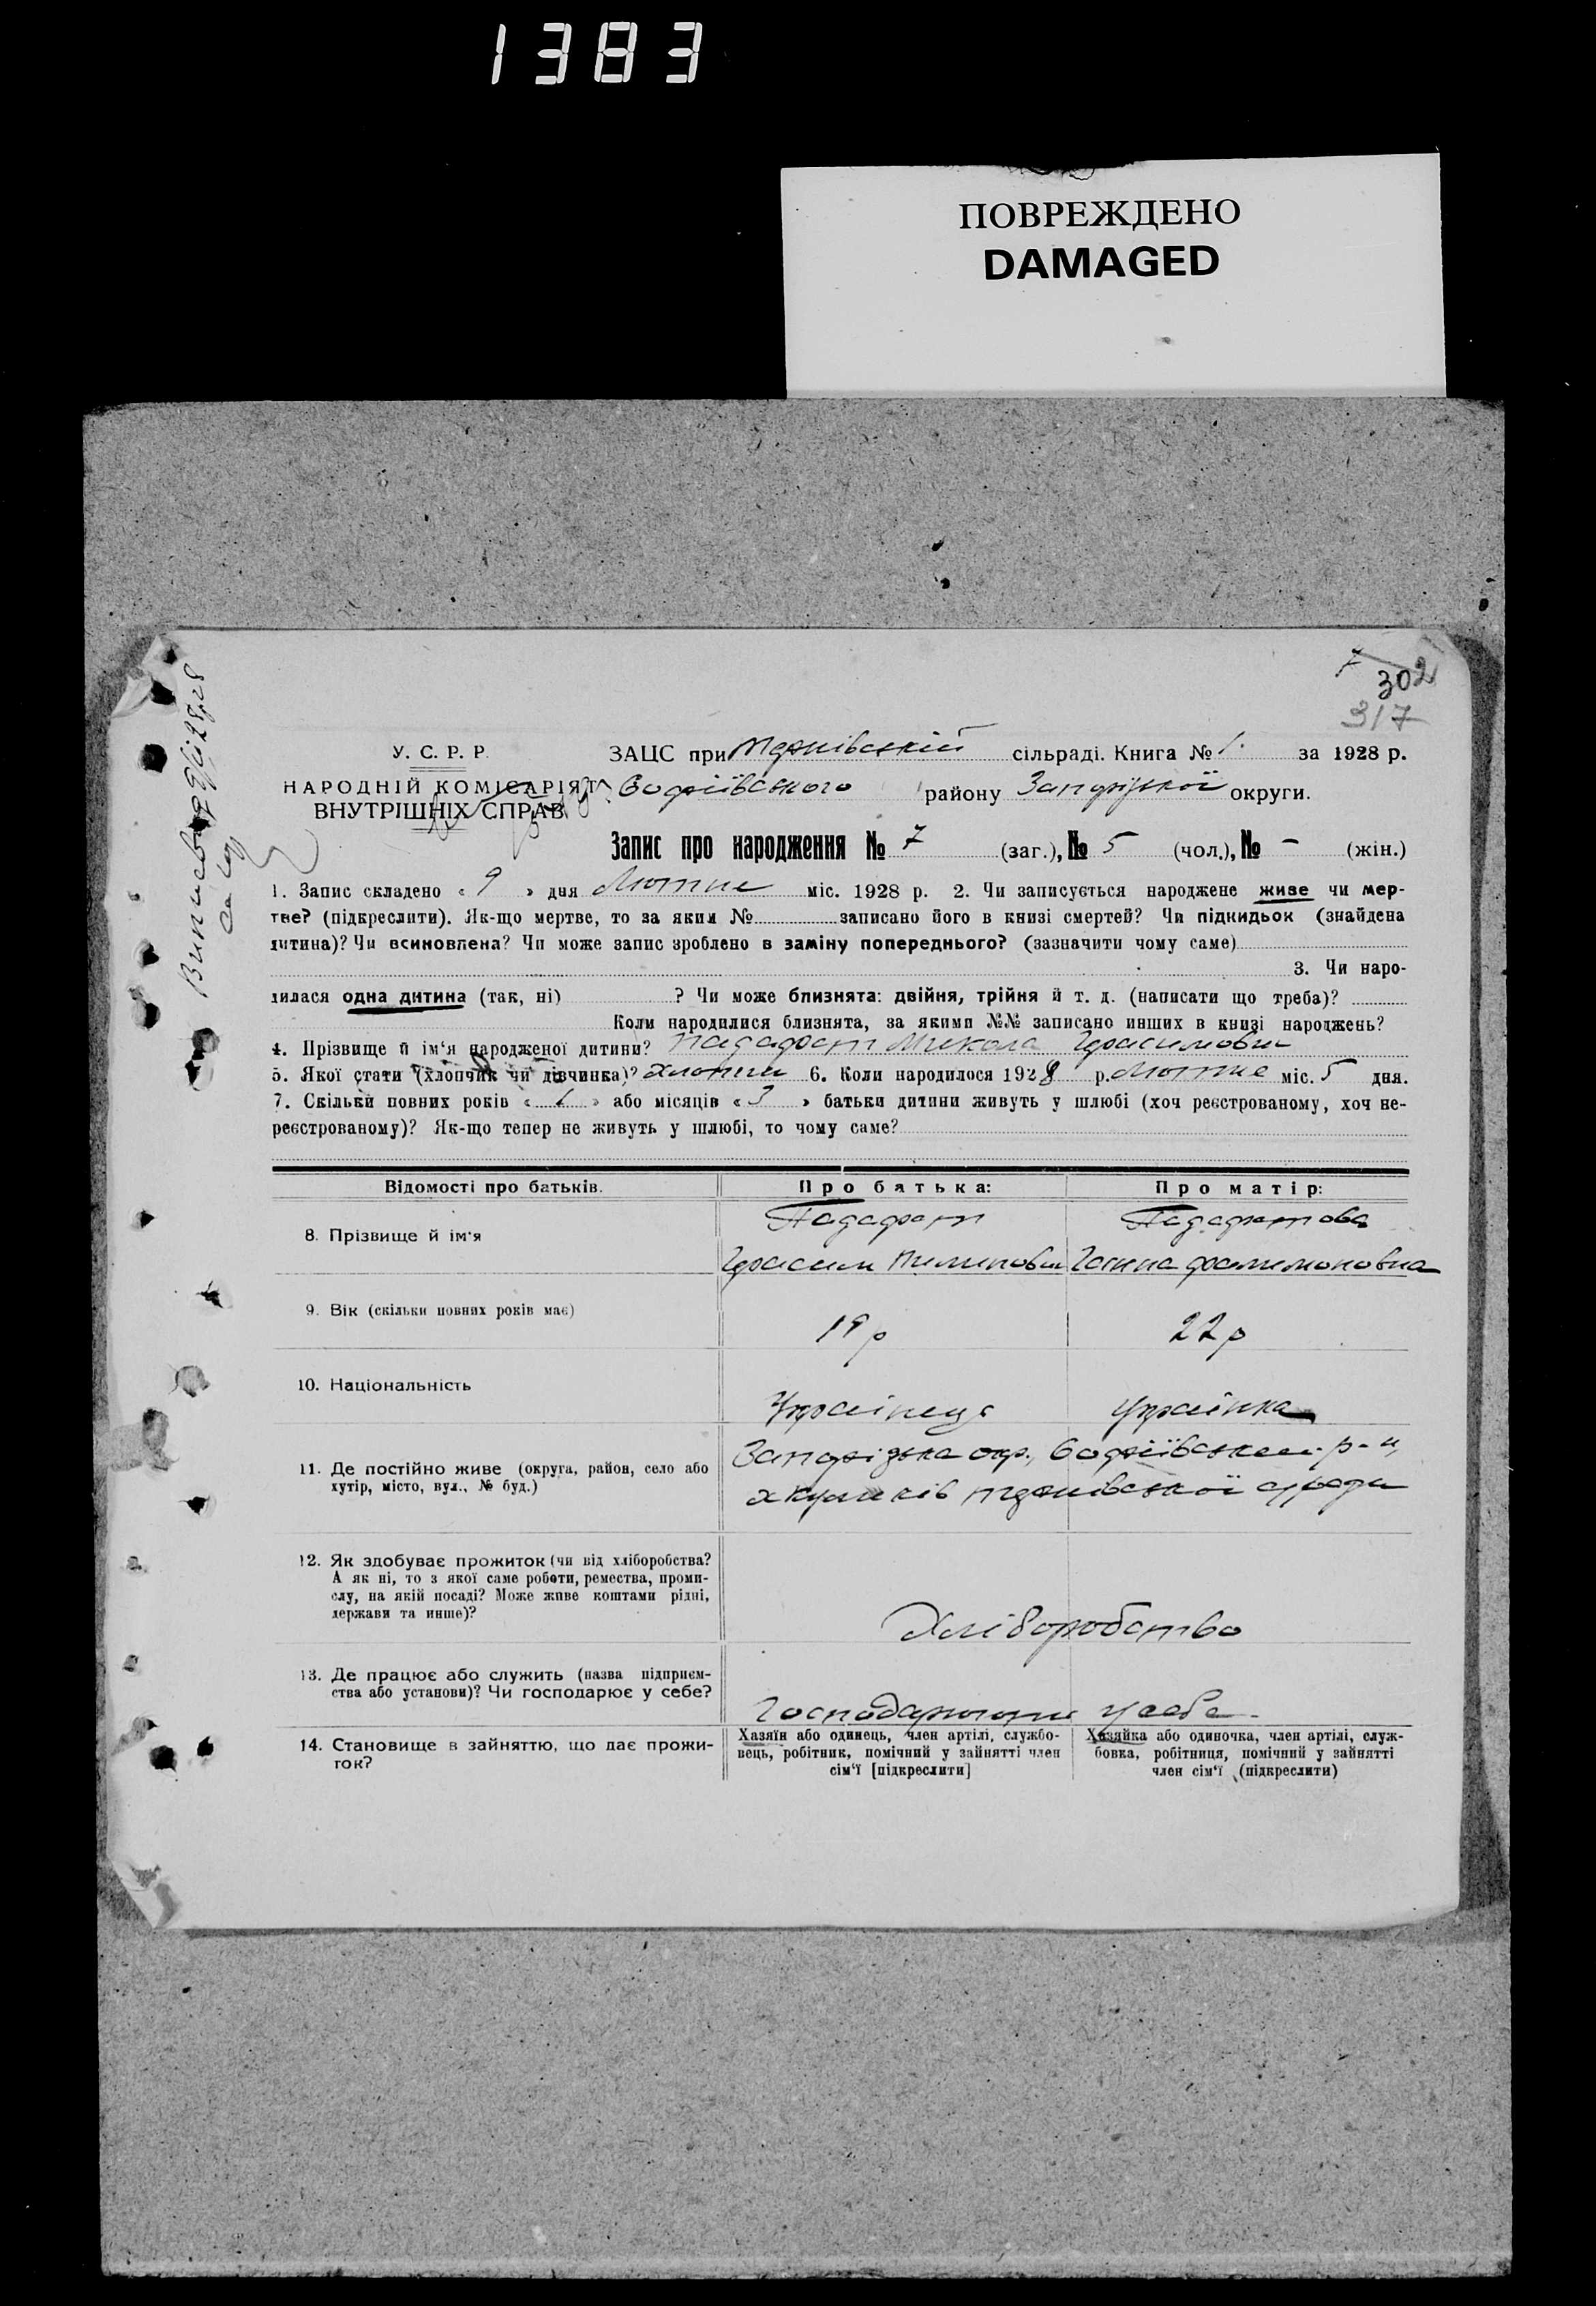 1383
ПОВРЕЖДЕНО
DAMAGED
7
302
317
У. С. Р. Р.
НАРОДНІЙ КОМІСАРІЯТ
ВНУТРІШНІХ СПРАВ
ЗАЦС при сільраді. Книга № 1. за 1928 р.
Софіївського району Запорізької округи.
Запис про народження № 7 (заг.), № 5 (чол.), № – (жін.)
1. Запис складено « 9 » дня Лютне міс. 1928 р. 2. Чи записується народжене живе чи мер-
тве? (підкреслити). Як-що мертве, то за яким № записано його в книзі смертей? Чи підкидьок (знайдена
дитина)? Чи всиновлена? Чи може запис зроблено в заміну попереднього? (зазначити чому саме)
3. Чи наро-
дилася одна дитина (так, ні) ? Чи може близнята: двійня, трійня й т. д. (написати що треба)?
Коли народилися близнята, за якими №№ записано инших в книзі народжень?
4. Прізвище й ім‘я народженої дитини? Микола Герасимович
5. Якої стати (хлопчик чи дівчинка)? хлопчик 6. Коли народилося 1928 р. Лютне міс. 5 дня.
7. Скільки повних років « 1 » або місяців « 3 » батьки дитини живуть у шлюбі (хоч реєстрованому, хоч не-
реєстрованому)? Як-що тепер не живуть у шлюбі, то чому саме?
Відомості про батьків.
Про батька:
Про матір:
8. Прізвище й ім‘я
Герасим
Ганна
9. Вік (скільки повних років має)
19 р
22 р
10. Національність
Українець
Українка
11. Де постійно живе (округа, район, село або
хутір, місто, вул., № буд.)
Запорізька окр., Софіївський р-н,
12. Як здобуває прожиток (чи від хліборобства?
А як ні, то з якої саме роботи, ремества, проми-
слу, на якій посаді? Може живе коштами рідні,
держави та инше)?
Хліборобство
13. Де працює або служить (назва підприєм-
ства або установи)? Чи господарює у себе?
у себе
14. Становище в зайняттю, що дає прожи-
ток?
Хазяїн або одинець, член артілі, службо-
вець, робітник, помічний у зайнятті член
сім‘ї [підкреслити]
Хазяйка або одиночка, член артілі, служ-
бовка, робітниця, помічний у зайнятті
член сім‘ї (підкреслити)